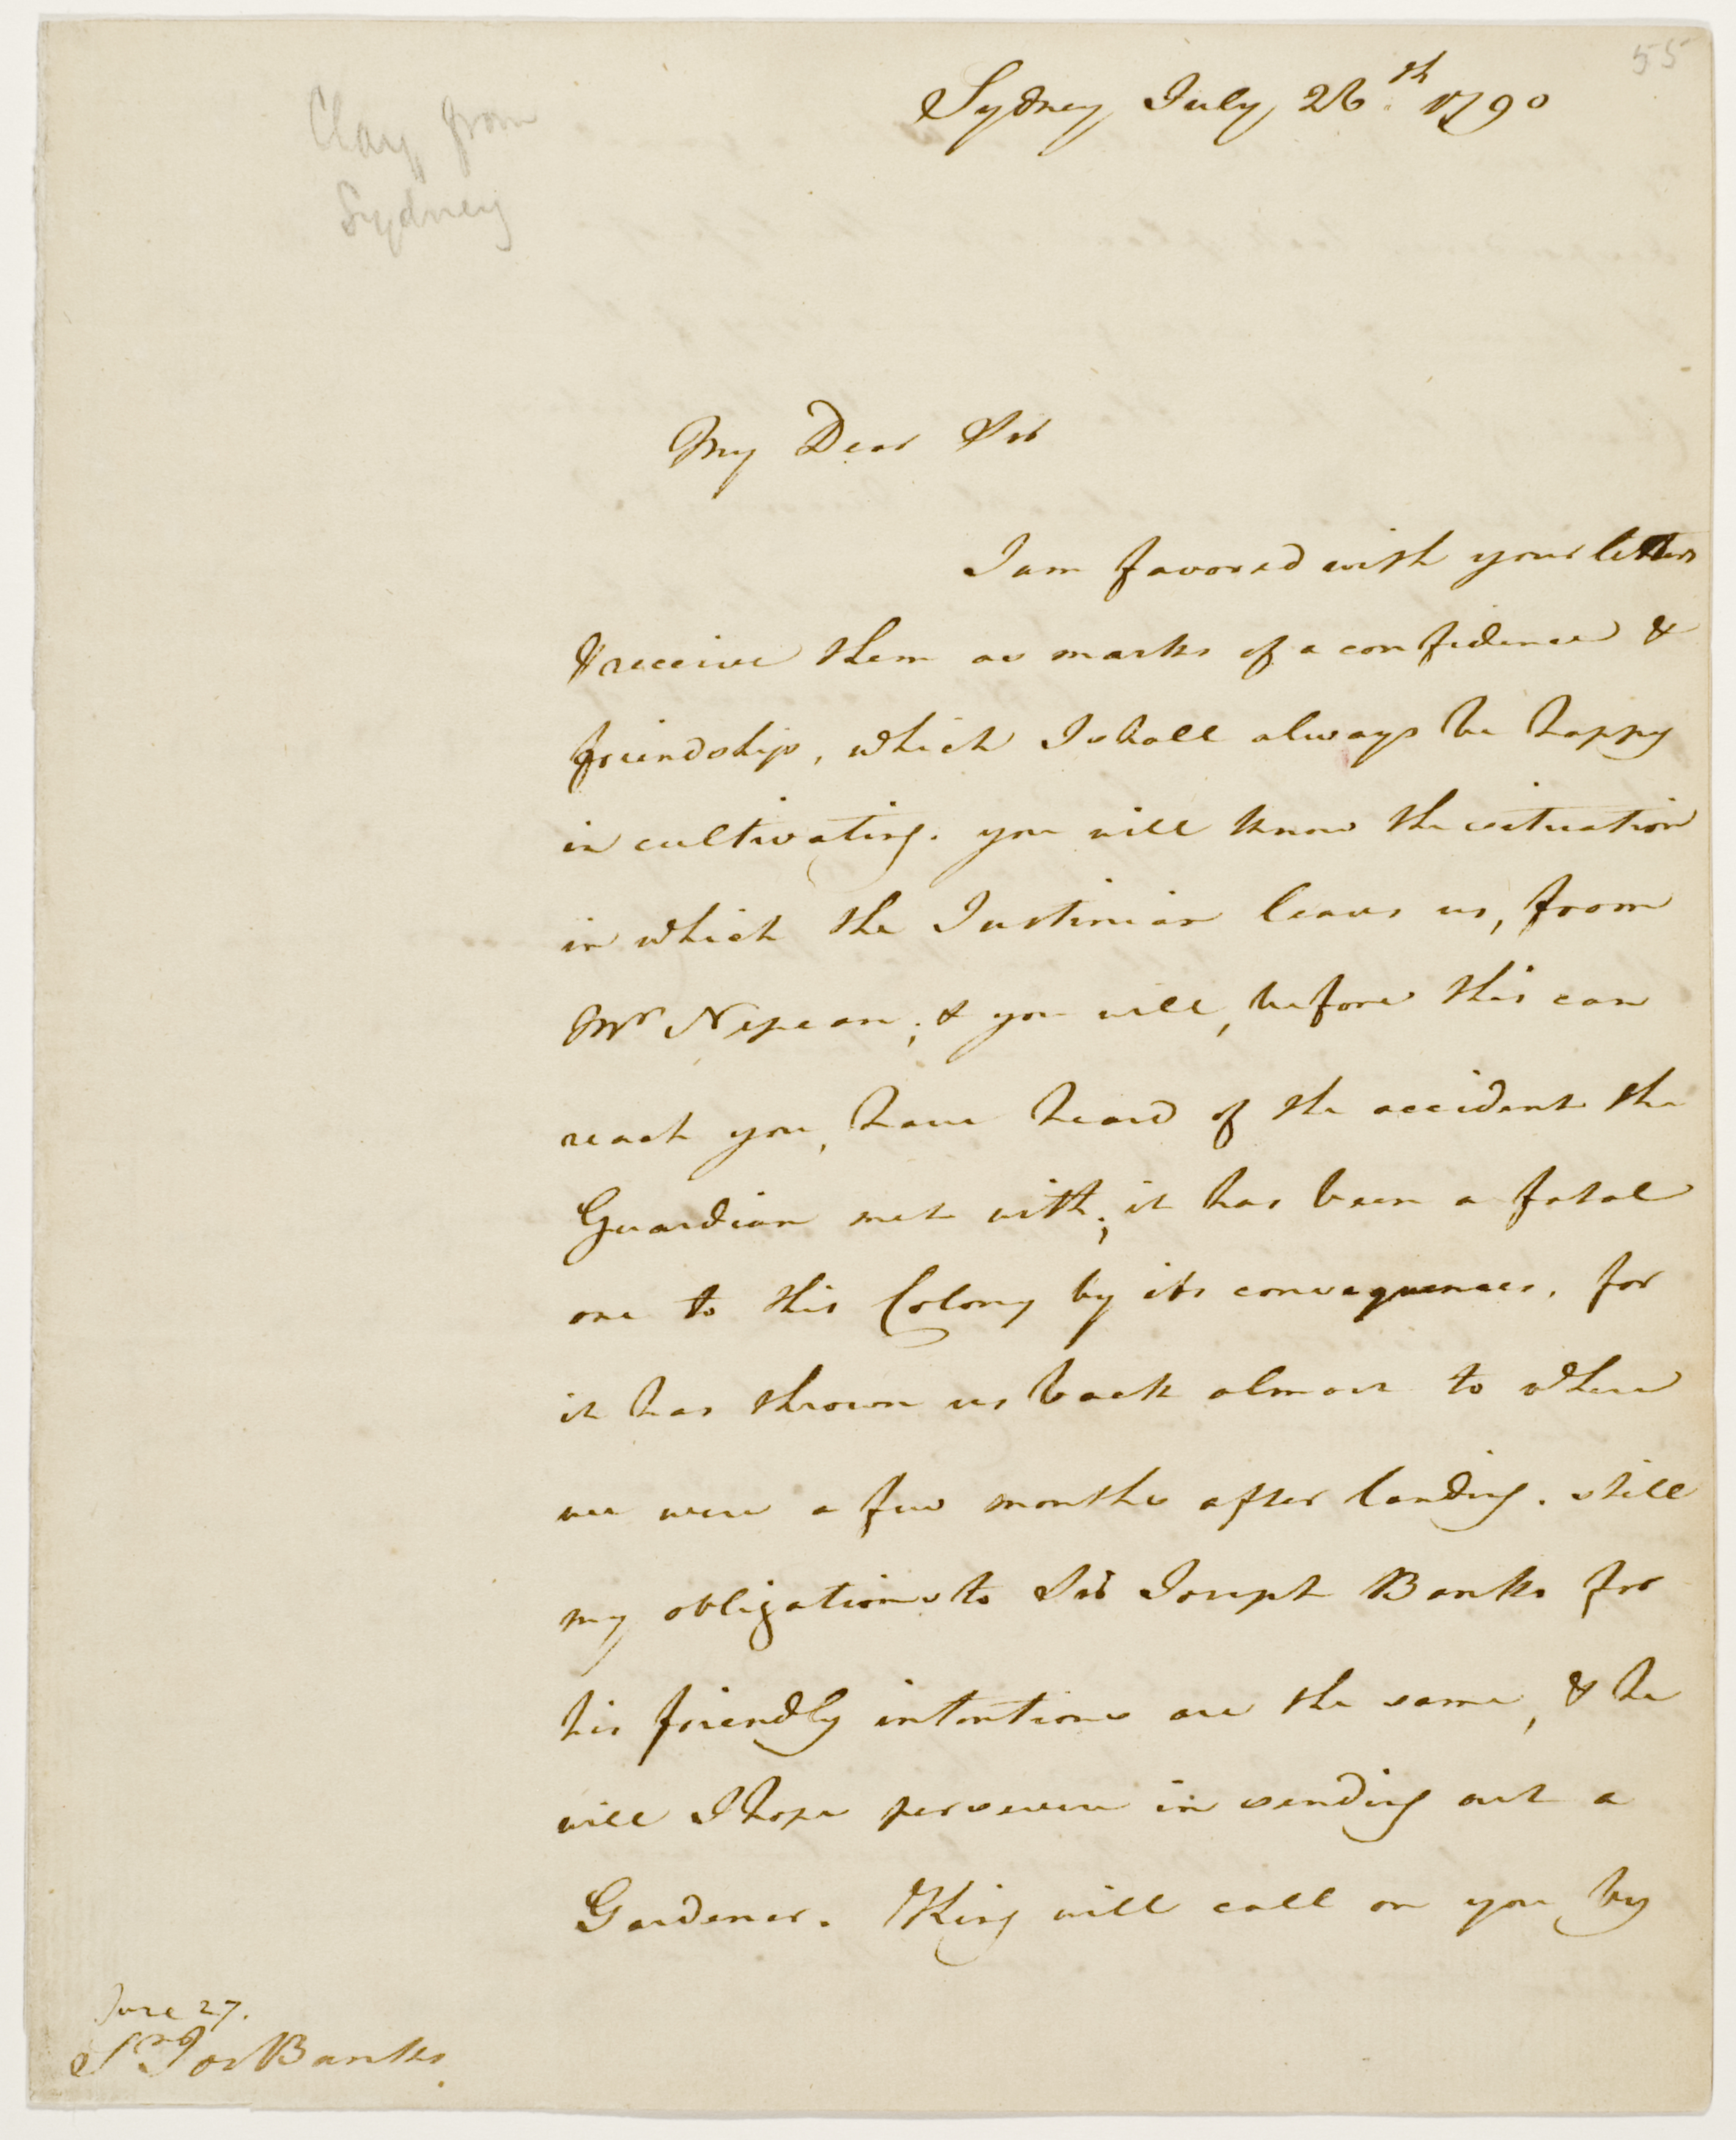 55
Sydney July 26th 1790
Clay from
Sydney
My Dear Sir
I am favored with your letters
& receive them as marks of a confidence &
friendship, which I shall always be happy
in cultivating. you will know the situation
in which the Justinian leaves us, from
Mr Nepean; & you will, before this can
reach you, have heard of the accident the
Guardian met with; it has been a fatal
one to this Colony by its consequences, for
it has thrown us back almost to where
we were a few months after landing. still
my obligations to Sir Joseph Banks for
his friendly intentions are the same, & he
will I hope persevere in sending out a
Gardener. King will call on you by
June 27.
Sr Jos Banks.